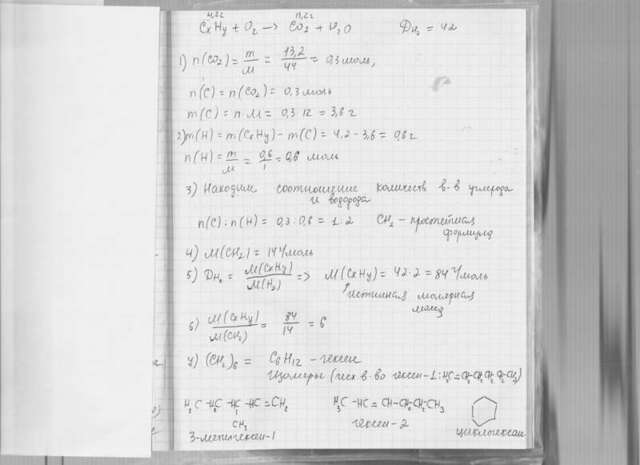 4,2г 13,2г
CxHy + O₂ → CO₂ + H₂O DH₂ = 42
1) n(CO₂) = m/M = 13,2/44 = 0,3 моль,
n(C) = n(CO₂) = 0,3 моль
m(C) = n·M = 0,3·12 = 3,6 г
2) m(H) = m(CxHy) - m(C) = 4,2 - 3,6 = 0,6 г
n(H) = m/M = 0,6/1 = 0,6 моль
3) Находим соотношение количеств в-в углерода
и водорода
n(C) : n(H) = 0,3 : 0,6 = 1 : 2 CH₂ - простейшая
формула
4) M(CH₂) = 14 г/моль
5) DH₂ = M(CxHy)/M(H₂) => M(CxHy) = 42·2 = 84 г/моль
истинная молярная
масса
6) M(CxHy)/M(CH₂) = 84/14 = 6
7) (CH₂)₆ = C₆H₁₂ - гексен
Изомеры (исх в-во гексен-1: H₂C=CH-CH₂-CH₂-CH₂-CH₃)
H₃C - HC = CH-CH₂-CH₂-CH₃
CH₃
3-метилгексен-1 гексен-2 циклогексан